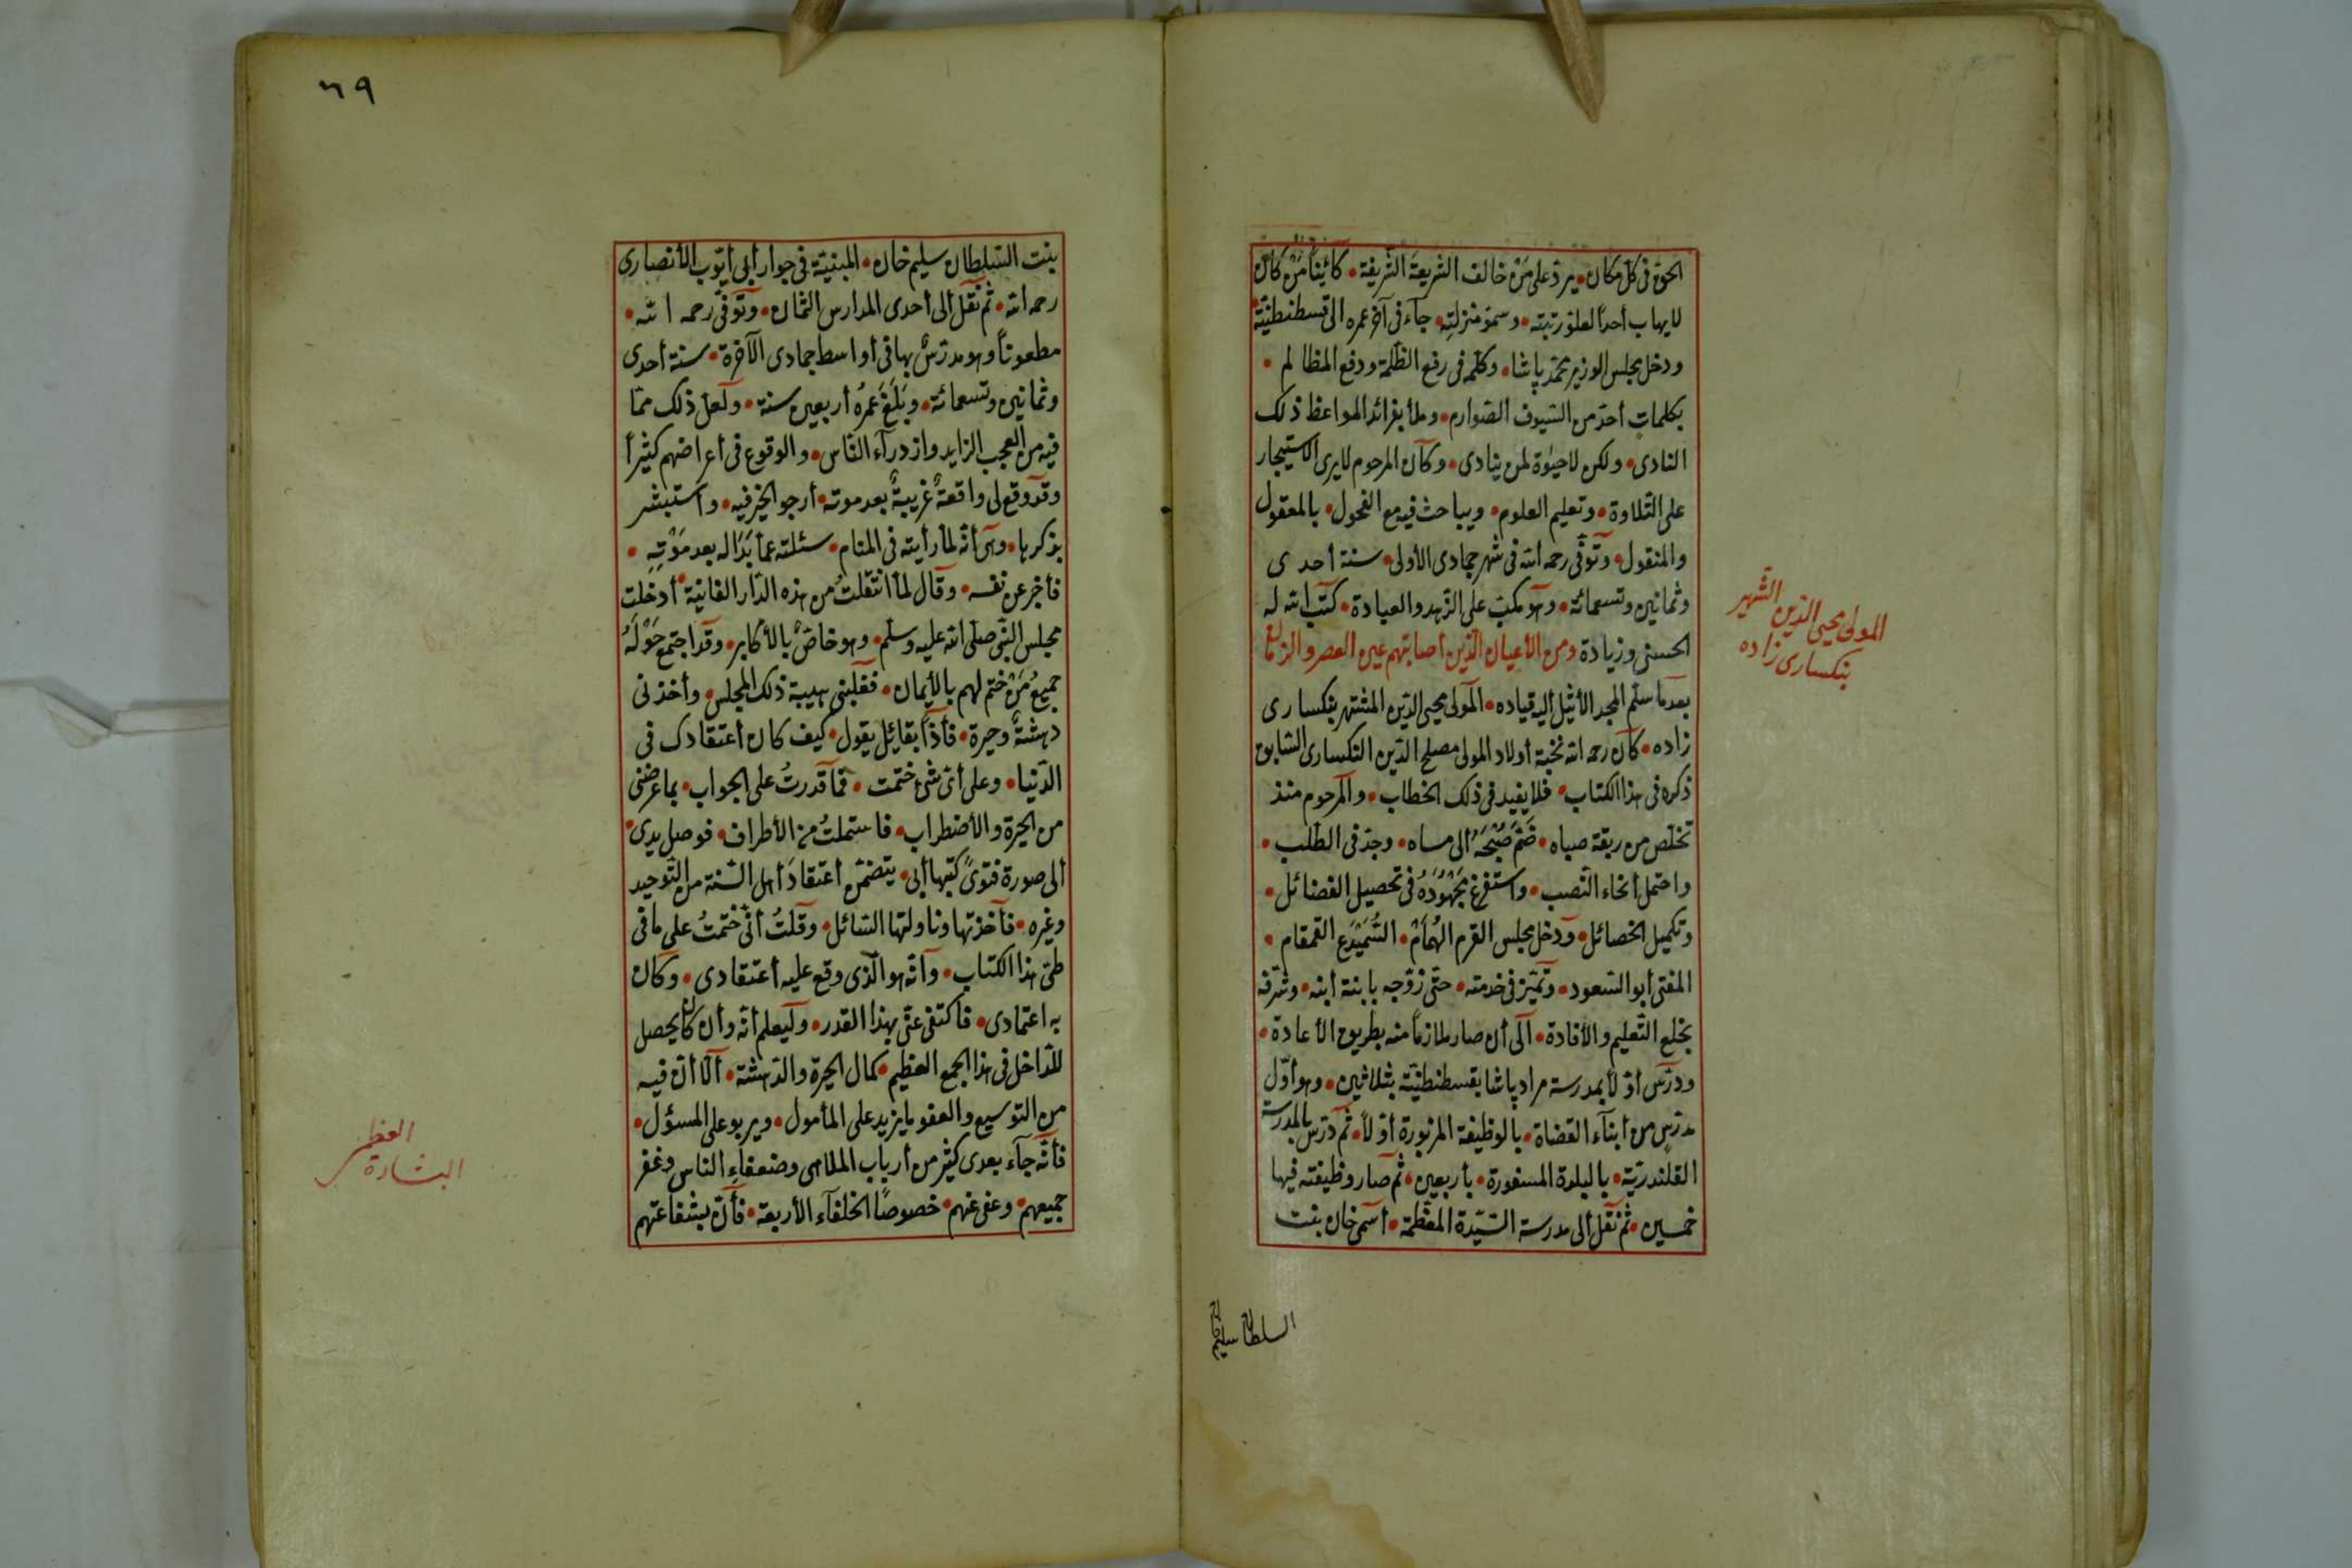 الحق فى كل مكان • يرد على مَنْ خالف الشريعة الشريفة • كائِناً مَنْ كان
لا يهاب أحداً لعلو رتبته • وسمو منزلتِه • جآء فى آخر عمره الى قسطنطنيّة •
ودخل مجلس الوزير محمّد پاشا • وكلّمه فى رفع الظلمة ودفع المظالم •
بكلماتٍ أحدّ من السّيوف الصّوارم • وملأ بفرائد المواعظ ذلك
النادى • ولكن لا حيٰوة لمن ينادى • وكآن المرحوم لا يرى الاستيجار
على التّلاوة • وتعليم العلوم • ويباحث فيه مع الفحول • بالمعقول
والمنقول • وتوّفّى رحمه الله فى شهر جمادى الأولى • سنة أحدى
وثمانين وتسعمائة • وهو مكبّ على الزّهد والعبادة • كتب الله له
الحسنى وزيادة ومن الأعيان الّذين أصابتهم عين العصر والزمان
بعدما سلّم المجد الأثيل اليه قياده • المولى محيى الدّين المشتهر بنكسارى
زاده • كان رحمه الله نخبة أولاد المولى مصلح الدّين النكسارى السّابق
ذكره فى هذا الكتاب • فلا يفيد فى ذلك الخطاب • والمرحوم منذ
تخلّص من ربقة صباه • ضَمّ صُبْحَهُ الى مساه • وجدّ فى الطّلب •
واحتمل أنحاء النّصب • واستفرغ مَجْهُودَهُ فى تحصيل الفضائل •
وتكميل الخصائل • ودخل مجلس القرم الهُمَامْ • السَّمَيْدَع القمقام •
المفتى أبو السّعود • وتميّز فى خدمته • حتّى زوّجه بابنة أبنه • وشرّفه
بخلع التّعليم والأفادة • ألى أن صار ملازماً منه بطريق الأعادة •
ودرّس أوّلاً بمدرسة مراد پاشا بقسطنطنيّة بثلاثين • وهو أوّل
مدرّسٍ من أبنآء القضاة • بالوظيفة المزبورة أوّلاً • ثم درّس بالمدرسة
القلندريّة • بالبلدة المسفورة • بأربعين • ثم صار وظيفته فيها
خمسين • ثم نقل ألى مدرسة السّيّدة المعظّمة • أسمى خان بنت
السلطان سليم خان
المولى محيى الدين الشهير
بنكسارى زاده
٦٩
بنت السّلطان سليم خان • المبنيّة فى جوار أبى أيّوب الأنصارى
رحمه الله • ثم نقل ألى أحدى المدارس الثمان • وتوفّى رحمه الله •
مطعوناً وهو مدرّسٌ بها فى أواسط جمادى الآخرة • سنة أحدى
وثمانين وتسعمائة • وبَلَغَ عمرهُ أربعين سنة • ولعل ذلك ممّا
فيه من العجب الزايد وازدرآء النّاس • والوقوع فى أعراضهم كثيراً
وقد وقع لى واقعةٌ غريبةٌ بعد موته • أرجو الخير فيه • وأستبشر
بذكرها • وهى أنّه لمّا رأيته فى المنام • سئلته عمّا بَدَا له بعد مَوْتِهِ •
فأخبر عن نفسه • وقال لمّا انتقلتُ من هذه الدّار الفانية • أدخلت
مجلس النّبى صلّى الله عليه وسلّم • وهو خاصّ بالأكابر • وقد اجتمع حَوْلَهُ
جميعُ مَنْ ختم لهم بالأيمان • فغلبنى هيبة ذلك المجلس • وأخذنى
دهشةٌ وحيرة • فأذا بقائِل يقول • كيف كان أعتقادك فى
الدّنيا • وعلى أىّ شئ ختمت • فما قدرتُ على الجواب • بما عرضنى
من الحيرة والأضطراب • فاستملتُ من الأطراف • فوصل يدى •
ألى صورة فتوىً كتبها أبى • يتضمّن أعتقادَ أهل السّنة من التّوحيد
وغيره • فأخذتها وناولتها السّائل • وقلتُ أنّى ختمتُ على ما فى
طىّ هذا الكتاب • وأنّه هو الّذى وقع عليه أعتقادى • وكان
به اعتمادى • فأكتفى عنّى بهذا القدر • وليعلم أنّه وأن كان يحصل
للدّاخل فى هذا الجمع العظيم • كمال الحيرة والدّهشة • ألّا أنّ فيه
من التوسيع والعفو ما يزيد على المأمول • ويربو على المسؤل •
فأنّه جآء بعدى كثير من أرباب الملاهى وضعفاءِ الناس وغفر
جميعهم • وعفى عنهم • خصوصاً الخلفآء الأربعة • فأنّ بشفاعتهم
العظمى
البشارة